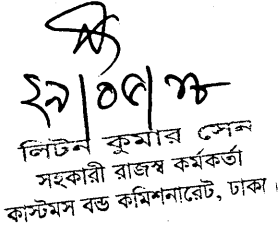 ২৯|০৫|১৮
লিটন কুমার সেন
সহকারী রাজস্ব কর্মকর্তা
কাস্টমস বন্ড কমিশনারেট, ঢাকা।